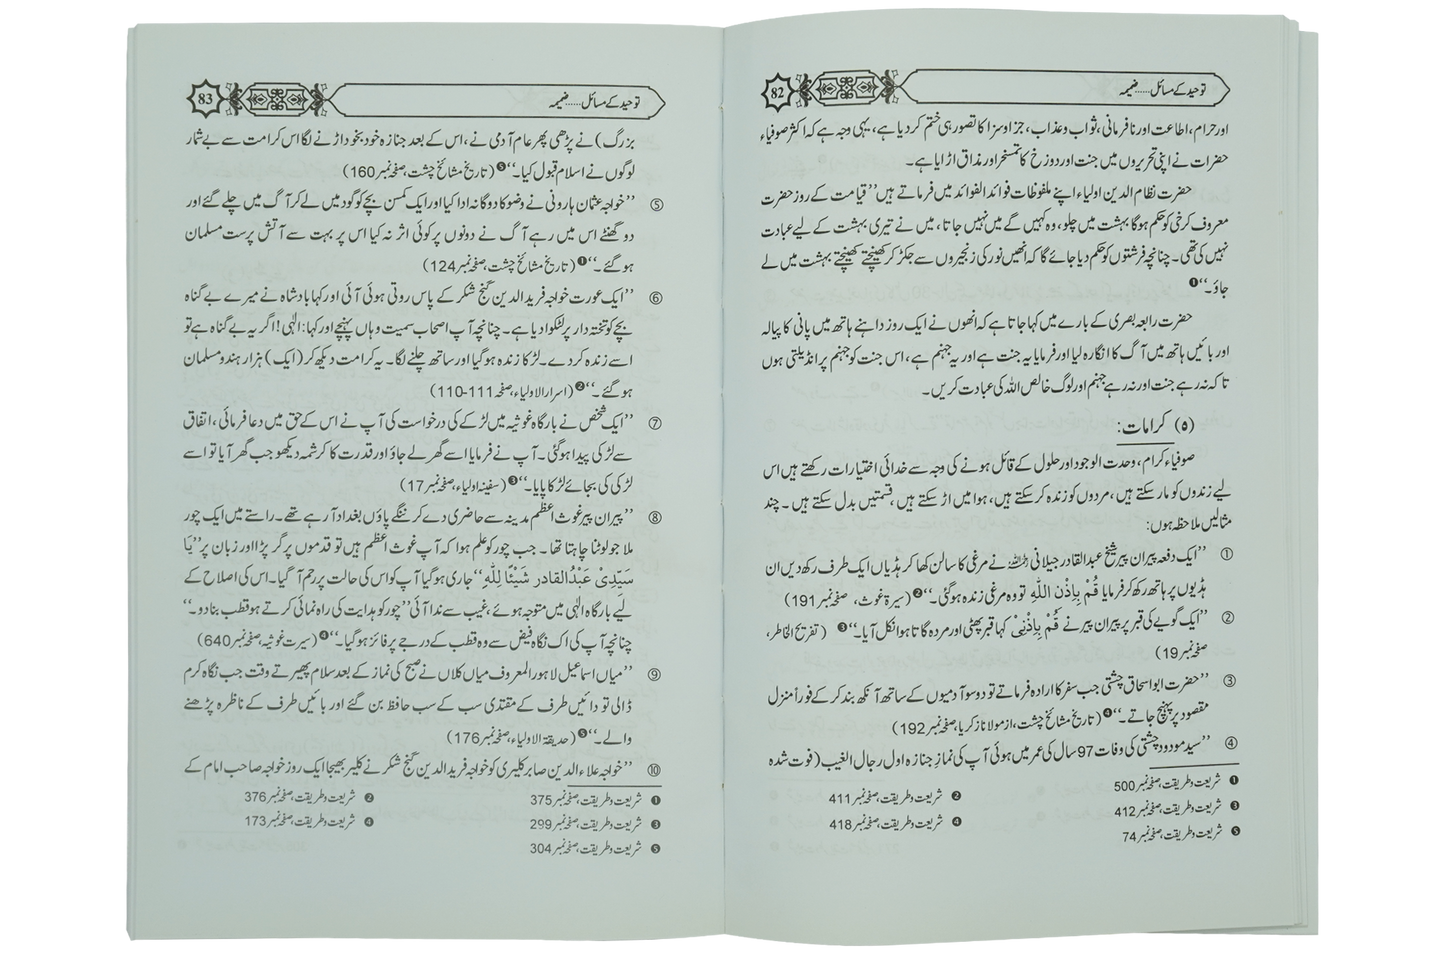 توحید کے مسائل......ضمیمہ
82
اور حرام، اطاعت اور نافرمانی، ثواب و عذاب، جزا و سزا کا تصور ہی ختم کر دیا ہے، یہی وجہ ہے کہ اکثر صوفیاء
حضرات نے اپنی تحریروں میں جنت اور دوزخ کا تمسخر اور مذاق اڑایا ہے۔
حضرت نظام الدین اولیاء اپنے ملفوظات فوائد الفوائد میں فرماتے ہیں ’’قیامت کے روز حضرت
معروف کرخی کو حکم ہوگا بہشت میں چلو، وہ کہیں گے میں نہیں جاتا، میں نے تیری بہشت کے لیے عبادت
نہیں کی تھی۔ چنانچہ فرشتوں کو حکم دیا جائے گا کہ انھیں نور کی زنجیروں سے جکڑ کر کھینچتے کھینچتے بہشت میں لے
جاؤ۔‘‘❶
حضرت رابعہ بصری کے بارے میں کہا جاتا ہے کہ انھوں نے ایک روز داہنے ہاتھ میں پانی کا پیالہ
اور بائیں ہاتھ میں آگ کا انگارہ لیا اور فرمایا یہ جنت ہے اور یہ جہنم ہے، اس جنت کو جہنم پر انڈیلتی ہوں
تاکہ نہ رہے جنت اور نہ رہے جہنم اور لوگ خالص اللہ کی عبادت کریں۔
(٥) کرامات:
صوفیاء کرام، وحدت الوجود اور حلول کے قائل ہونے کی وجہ سے خدائی اختیارات رکھتے ہیں اس
لیے زندوں کو مار سکتے ہیں، مردوں کو زندہ کر سکتے ہیں، ہوا میں اڑ سکتے ہیں، قسمتیں بدل سکتے ہیں۔ چند
مثالیں ملاحظہ ہوں:
① ’’ایک دفعہ پیران پیر شیخ عبدالقادر جیلانی رحمہ اللہ نے مرغی کا سالن کھا کر ہڈیاں ایک طرف رکھ دیں ان
ہڈیوں پر ہاتھ رکھ کر فرمایا قُمْ بِإِذْنِ اللّٰهِ تو وہ مرغی زندہ ہوگئی۔‘‘❷ (سیرۃ غوث، صفحہ نمبر 191)
② ’’ایک گویے کی قبر پر پیران پیر نے قُمْ بِإِذْنِیْ کہا قبر پھٹی اور مردہ گاتا ہوا نکل آیا۔‘‘❸ (تفریح الخاطر،
صفحہ نمبر 19)
③ ’’حضرت ابو اسحاق چشتی جب سفر کا ارادہ فرماتے تو دو سو آدمیوں کے ساتھ آنکھ بند کر کے فوراً منزل
مقصود پر پہنچ جاتے۔‘‘❹ (تاریخ مشائخ چشت، از مولانا زکریا، صفحہ نمبر 192)
④ ’’سید مودود چشتی کی وفات 97 سال کی عمر میں ہوئی آپ کی نماز جنازہ اول رجال الغیب (فوت شدہ
❶ شریعت و طریقت، صفحہ نمبر 500
❷ شریعت و طریقت، صفحہ نمبر 411
❸ شریعت و طریقت، صفحہ نمبر 412
❹ شریعت و طریقت، صفحہ نمبر 418
❺ شریعت و طریقت، صفحہ نمبر 74
توحید کے مسائل......ضمیمہ
83
بزرگ) نے پڑھی پھر عام آدمی نے، اس کے بعد جنازہ خود بخود اڑنے لگا اس کرامت سے بے شمار
لوگوں نے اسلام قبول کیا۔‘‘❺ (تاریخ مشائخ چشت، صفحہ نمبر 160)
⑤ ’’خواجہ عثمان ہارونی نے وضو کا دوگانہ ادا کیا اور ایک کمسن بچے کو گود میں لے کر آگ میں چلے گئے اور
دو گھنٹے اس میں رہے آگ نے دونوں پر کوئی اثر نہ کیا اس پر بہت سے آتش پرست مسلمان
ہوگئے۔‘‘❶ (تاریخ مشائخ چشت، صفحہ نمبر 124)
⑥ ’’ایک عورت خواجہ فرید الدین گنج شکر کے پاس روتی ہوئی آئی اور کہا بادشاہ نے میرے بے گناہ
بچے کو تختہ دار پر لٹکوا دیا ہے۔ چنانچہ آپ اصحاب سمیت وہاں پہنچے اور کہا: الٰہی! اگر یہ بے گناہ ہے تو
اسے زندہ کر دے۔ لڑکا زندہ ہوگیا اور ساتھ چلنے لگا۔ یہ کرامت دیکھ کر (ایک) ہزار ہندو مسلمان
ہوگئے۔‘‘❷ (اسرار الاولیاء، صفحہ 111-110)
⑦ ’’ایک شخص نے بارگاہ غوثیہ میں لڑکے کی درخواست کی آپ نے اس کے حق میں دعا فرمائی، اتفاق
سے لڑکی پیدا ہوگئی۔ آپ نے فرمایا اسے گھر لے جاؤ اور قدرت کا کرشمہ دیکھو جب گھر آیا تو اسے
لڑکی کی بجائے لڑکا پایا۔‘‘❸ (سفینہ اولیاء، صفحہ نمبر 17)
⑧ ’’پیران پیر غوث اعظم مدینہ سے حاضری دے کر ننگے پاؤں بغداد آرہے تھے۔ راستے میں ایک چور
ملا جو لوٹنا چاہتا تھا۔ جب چور کو علم ہوا کہ آپ غوث اعظم ہیں تو قدموں پر گر پڑا اور زبان پر ’’يَا
سَيِّدِيْ عَبْدُالقادر شَيْئًا لِلّٰهِ‘‘ جاری ہوگیا آپ کو اس کی حالت پر رحم آگیا۔ اس کی اصلاح کے
لیے بارگاہ الٰہی میں متوجہ ہوئے، غیب سے ندا آئی ’’چور کو ہدایت کی راہ نمائی کرتے ہو قطب بنا دو۔‘‘
چنانچہ آپ کی اک نگاہ فیض سے وہ قطب کے درجے پر فائز ہوگیا۔‘‘❹ (سیرت غوثیہ، صفحہ نمبر 640)
⑨ ’’میاں اسماعیل لاہور المعروف میاں کلاں نے صبح کی نماز کے بعد سلام پھیرتے وقت جب نگاہ کرم
ڈالی تو دائیں طرف کے مقتدی سب کے سب حافظ بن گئے اور بائیں طرف کے ناظرہ پڑھنے
والے۔‘‘❺ (حدیقۃ الاولیاء، صفحہ نمبر 176)
⑩ ’’خواجہ علاء الدین صابر کلیری کو خواجہ فرید الدین گنج شکر نے کلیر بھیجا ایک روز خواجہ صاحب امام کے
❶ شریعت و طریقت، صفحہ نمبر 375
❷ شریعت و طریقت، صفحہ نمبر 376
❸ شریعت و طریقت، صفحہ نمبر 299
❹ شریعت و طریقت، صفحہ نمبر 173
❺ شریعت و طریقت، صفحہ نمبر 304